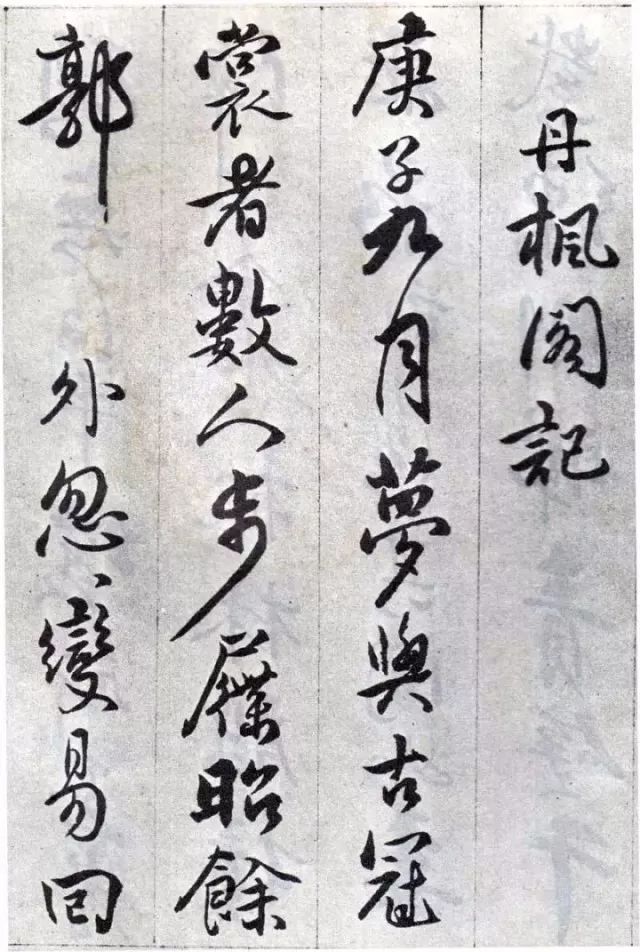 丹楓閣記
庚子九月夢與古冠
裳者數人步屧昭餘
郭外忽〻變易回